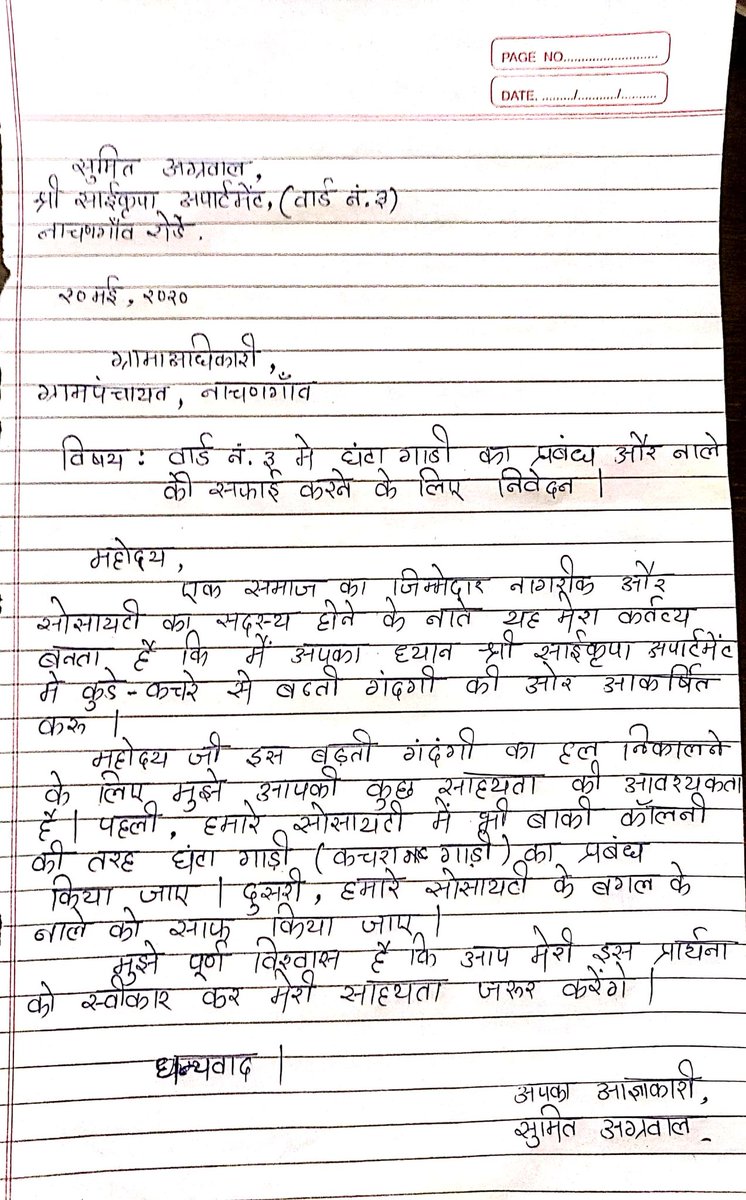 PAGE NO..........................
DATE. ........./.........../..........
सुमित अग्रवाल,
श्री साईकृपा अपार्टमेंट, (वार्ड नं.३)
नाचणगाँव रोड.
२० मई, २०२०
ग्रामाअधिकारी,
ग्रामपंचायत, नाचणगाँव
विषय : वार्ड नं. ३ मे घंटा गाडी का प्रबंध और नाले
की सफाई करने के लिए निवेदन |
महोदय,
एक समाज का जिम्मेदार नागरीक और
सोसायटी का सदस्य होने के नाते यह मेरा कर्तव्य
बनता है कि मैं अपका ध्यान श्री साईकृपा अपार्टमेंट
मे कुडे-कचरे से बढती गंदगी की ओर आकर्षित
करू |
महोदय जी इस बढ़ती गंदंगी का हल निकालने
के लिए मुझे आपकी कुछ साहयता की आवश्यकता
है | पहली, हमारे सोसायटी में भी बाकी कॉलनी
की तरह घंटा गाड़ी (कचरा गाड़ी) का प्रबंध
किया जाए | दुसरी, हमारे सोसायटी के बगल के
नाले को साफ किया जाए |
मुझे पूर्ण विश्वास है कि आप मेरी इस प्रार्थना
को स्वीकार कर मेरी साहयता जरुर करेंगे |
धन्यवाद |
अपका आज्ञाकारी,
सुमित अग्रवाल.